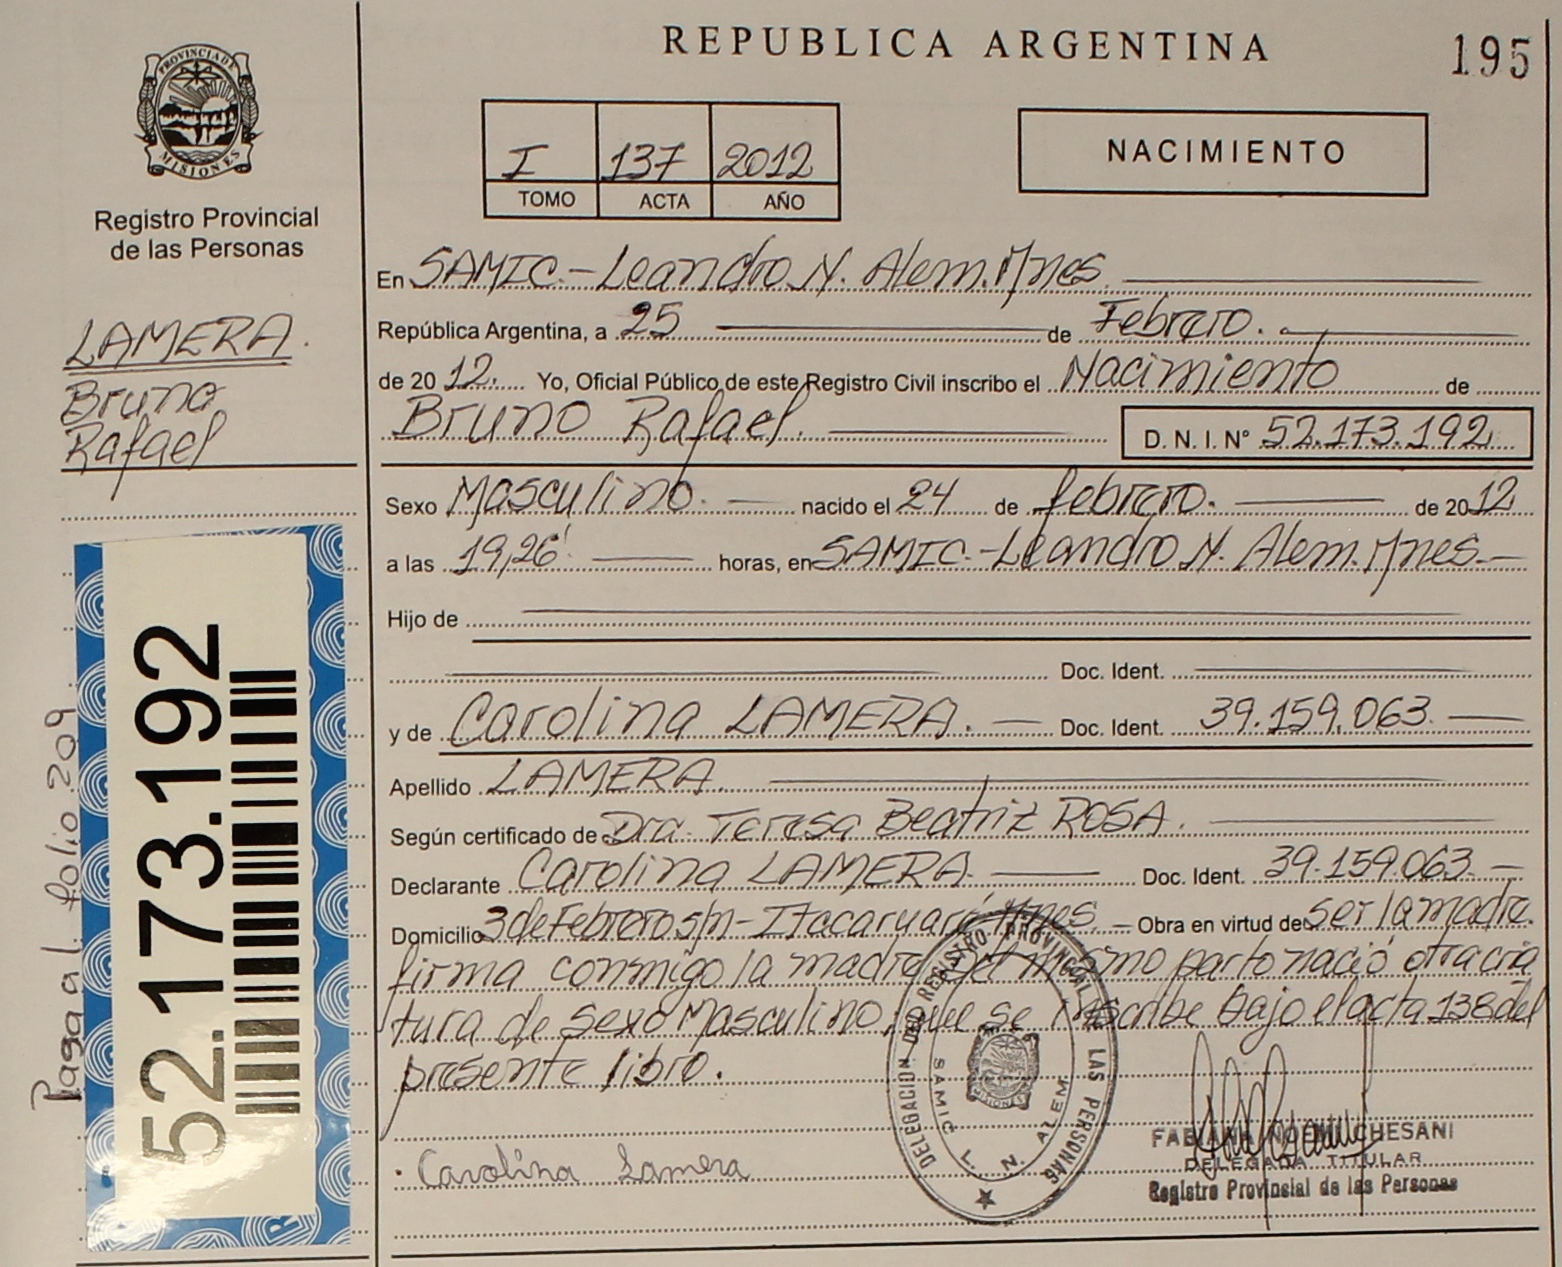 REPUBLICA ARGENTINA
195
PROVINCIA DE MISIONES
Registro Provincial
de las Personas
I 137 2012
TOMO ACTA AÑO
NACIMIENTO
LAMERA.
Bruno
Rafael
En SAMIC.-Leandro N. Alem.Mnes.
República Argentina, a 25 de Febrero.
de 2012. Yo, Oficial Público de este Registro Civil inscribo el Nacimiento de
Bruno Rafael. D.N.I.Nº 52.173.192
Sexo Masculino. nacido el 24 de febrero. de 2012
a las 19,26' horas, en SAMIC.-Leandro N. Alem.Mnes.
Hijo de
Doc. Ident.
y de Carolina LAMERA. Doc. Ident. 39.159.063.
Apellido LAMERA.
Según certificado de Dra. Teresa Beatriz ROSA.
Declarante Carolina LAMERA. Doc. Ident. 39.159.063.
Domicilio 3 de Febrero s/n-Itacaruaré Mnes. Obra en virtud de ser la madre.
firma conmigo la madre del mismo parto nació otra cria
tura de sexo Masculino, que se inscribe bajo el acta 138 del
presente libro.
Carolina Lamera
DELEGACION DEL REGISTRO PROVINCIAL DE LAS PERSONAS
SAMIC L. N. ALEM
CHESANI
DELEGADA TITULAR
Registro Provincial de las Personas
52.173.192
Pasa al folio 209.